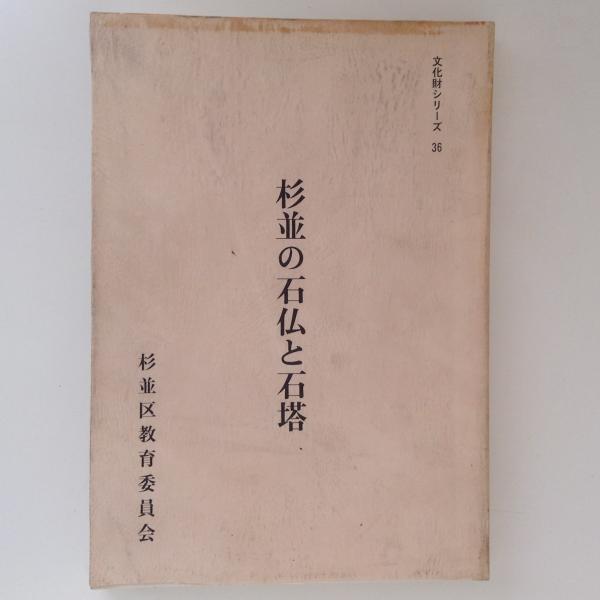 文化財シリーズ 36
杉並の石仏と石塔
杉並区教育委員会